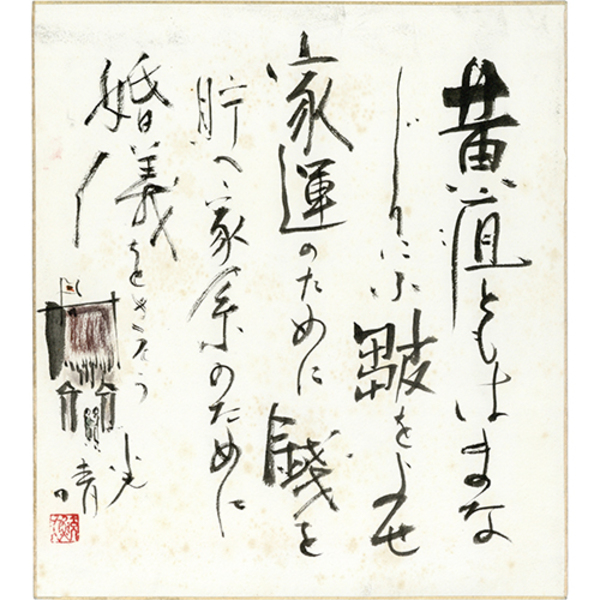 黄疸ともはまな
じりに小皺をよせ
家運のために銭を
貯へ家系のために
婚儀をきそう
光晴